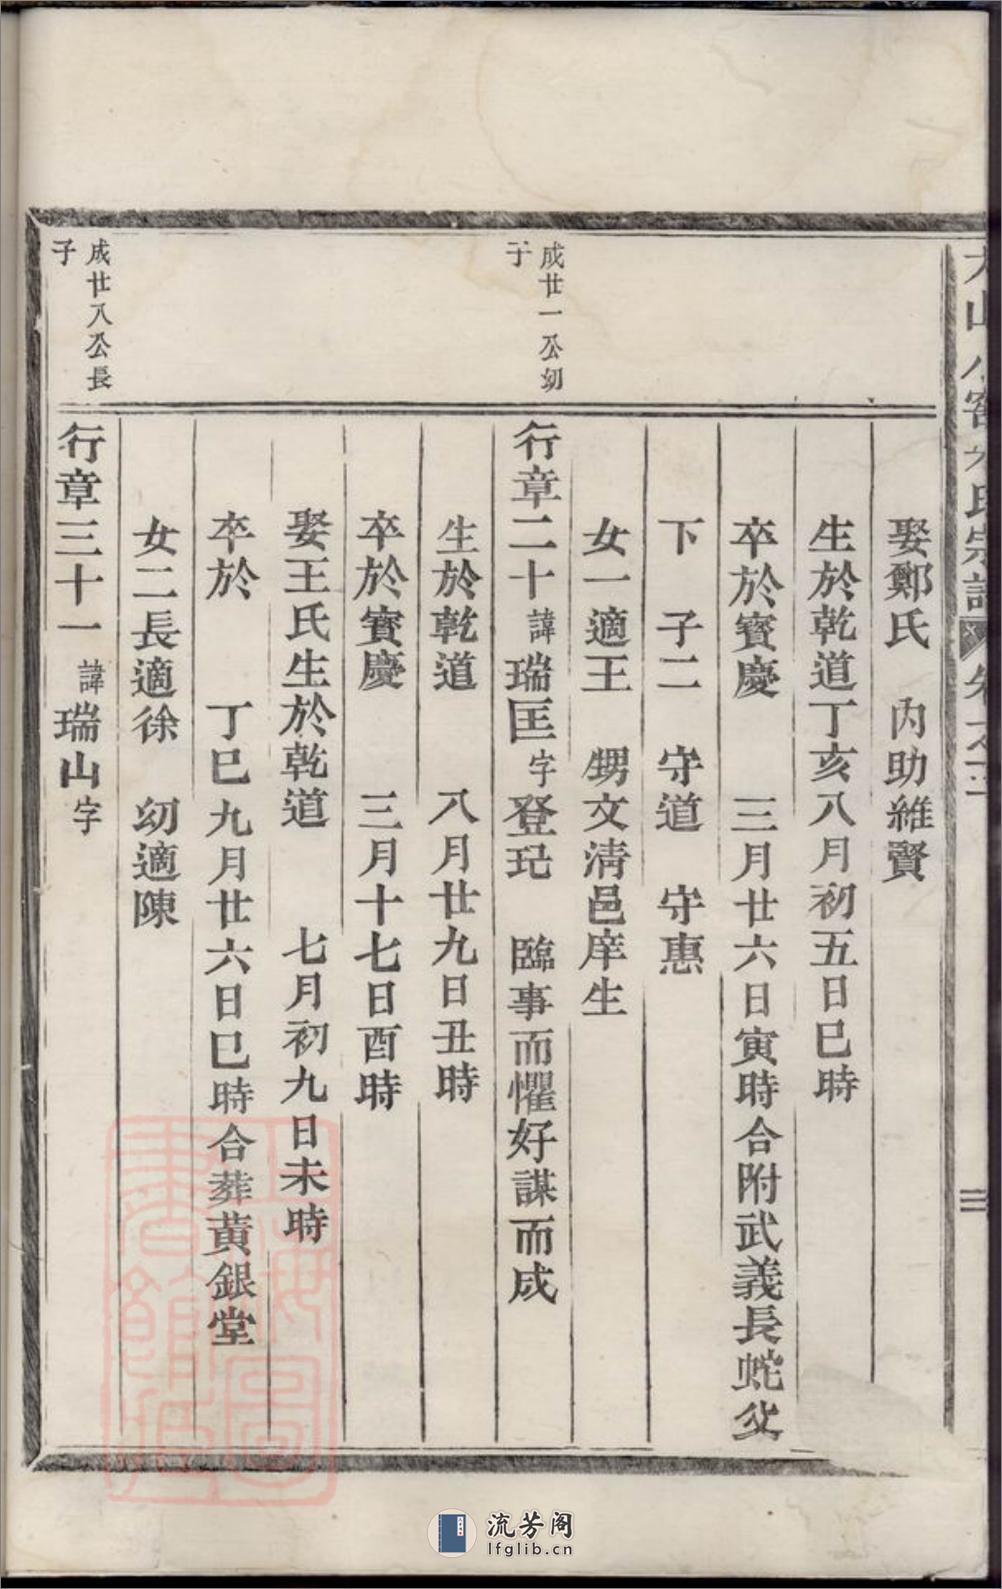 娶鄭氏　內助維賢
生於乾道丁亥八月初五日巳時
卒於寳慶　三月廿六日寅時合附武義長蛇父
下　子二　守道　守惠
女一適王　甥文淸邑庠生
成廿一公幼
子
行章二十諱瑞匡字登玘　臨事而懼好謀而成
生於乾道　八月廿九日丑時
卒於寳慶　三月十七日酉時
娶王氏生於乾道　七月初九日未時
卒於　丁巳九月廿六日巳時合葬黄銀堂
女二長適徐　幼適陳
成廿八公長
子
行章三十一諱瑞山字
流芳阁
lfglib.cn